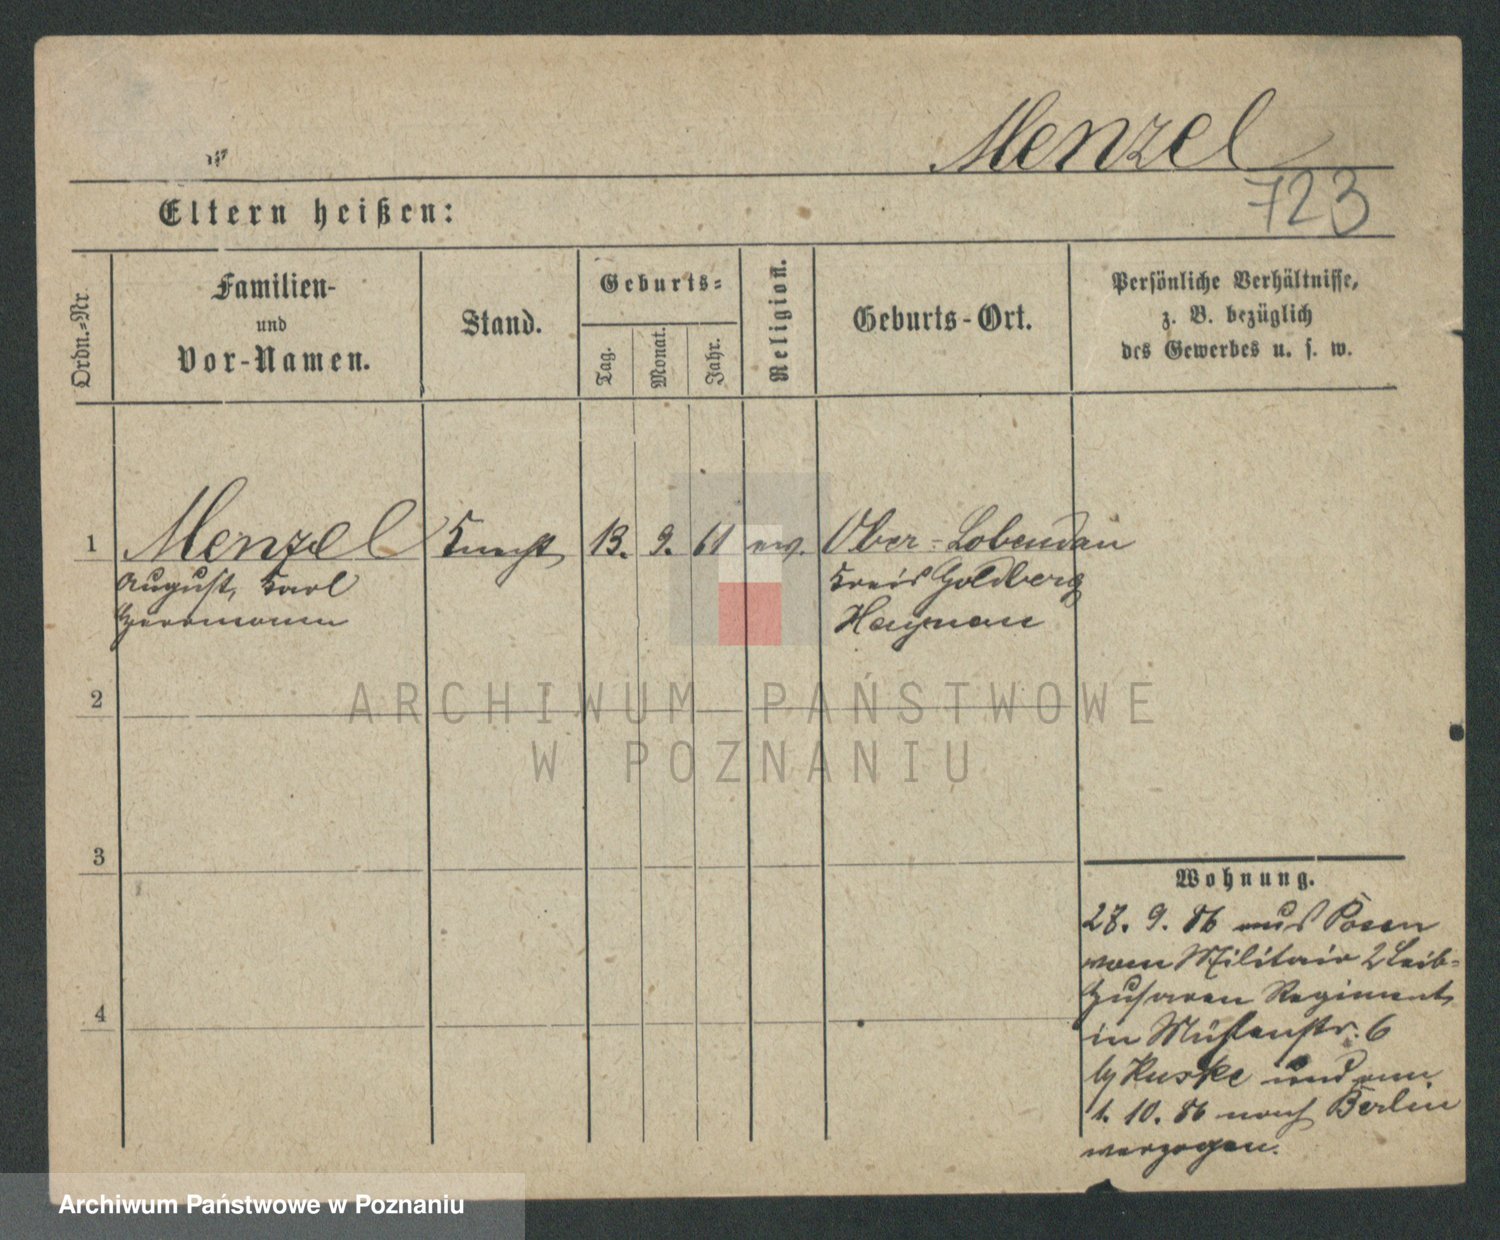 Menzel
723
Eltern heißen:
Ordn.-Nr.
Familien-
und
Vor-Namen.
Stand.
Geburts-
Tag.
Monat.
Jahr.
Religion.
Geburts-Ort.
Persönliche Verhältnisse,
z. B. bezüglich
des Gewerbes u. s. w.
1 Menzel Knecht 13. 9. 61 ev. Ober-Lobendau
August, Karl Kreis Goldberg
Herrmann Haynau
2
ARCHIWUM PAŃSTWOWE
W POZNANIU
3
Wohnung.
28. 9. 86 aus Posen
vom Militair 2 Leib-
Husaren Regiment
4
in Mühlenstr. 6
b/ Huske und am
1. 10. 86 nach Berlin
verzogen.
Archiwum Państwowe w Poznaniu